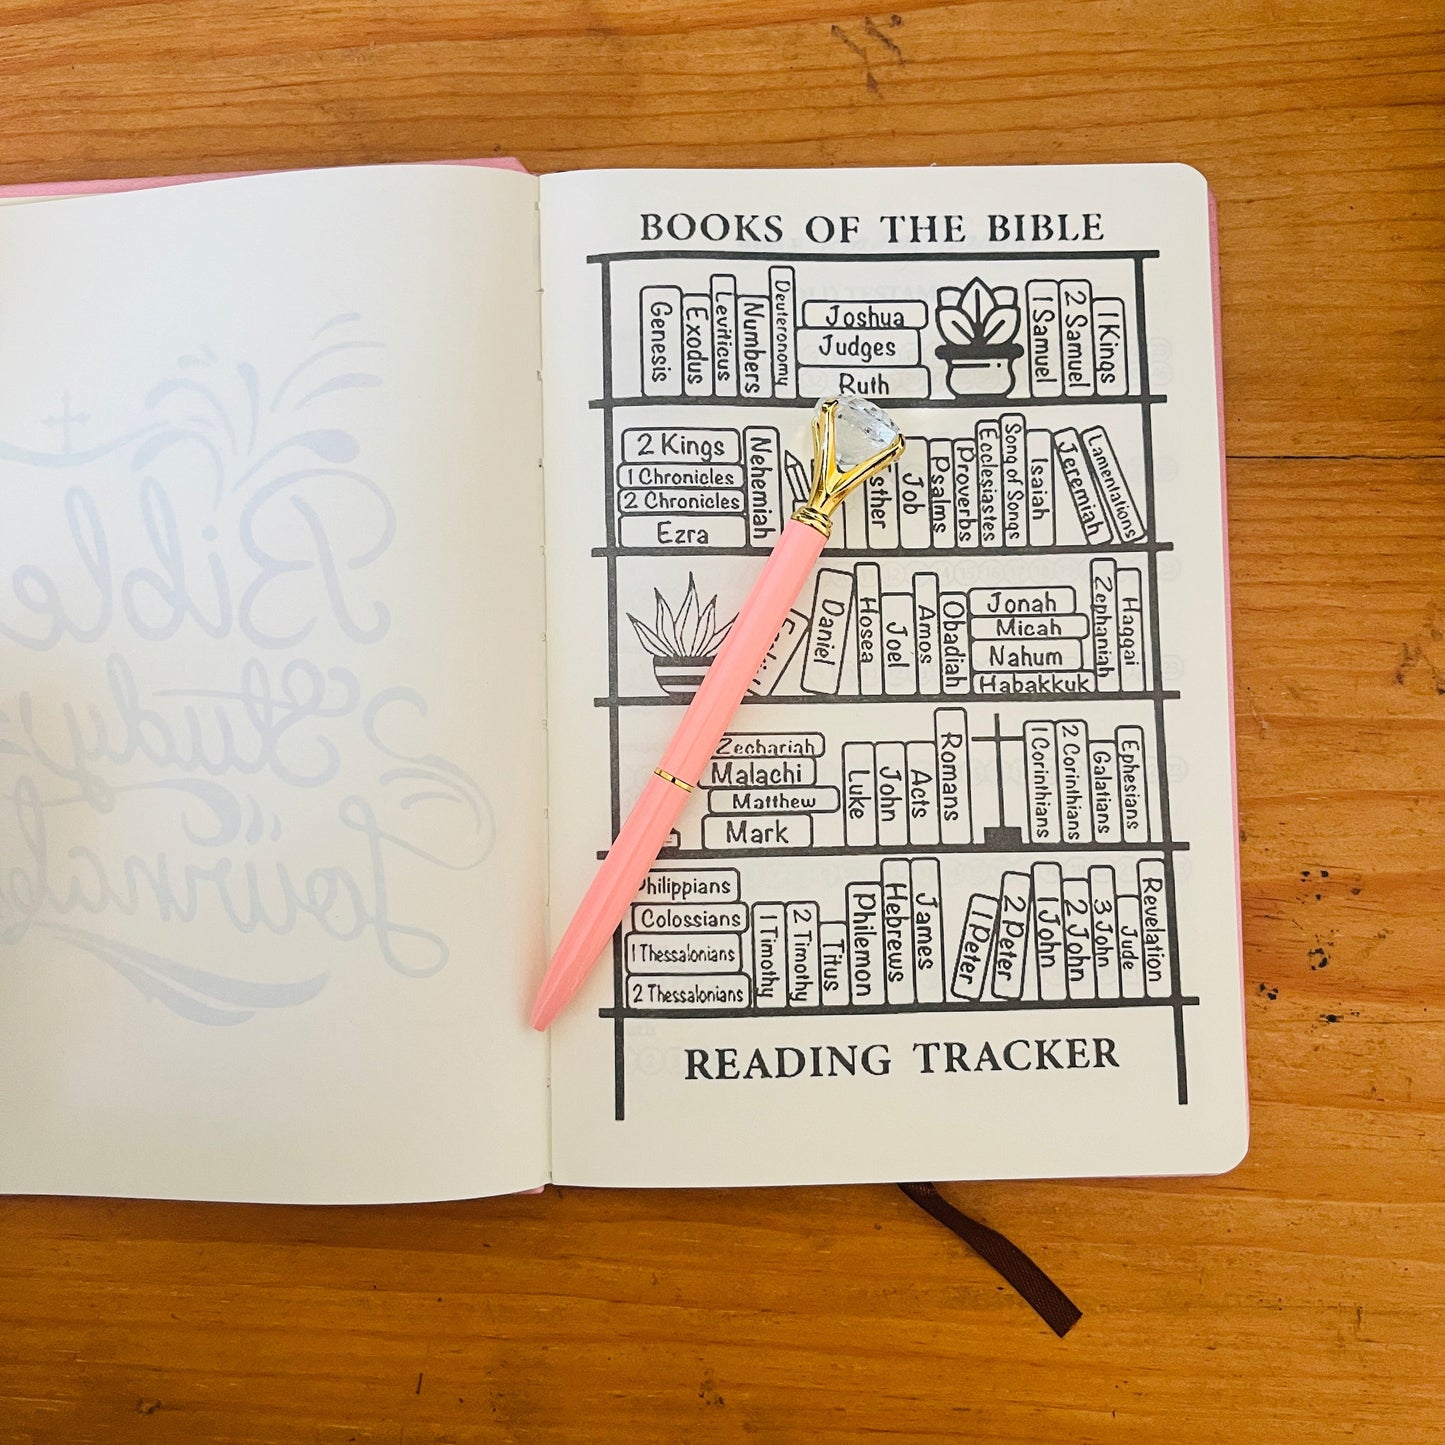 BOOKS OF THE BIBLE
Genesis
Exodus
Leviticus
Numbers
Deuteronomy
Joshua
Judges
Ruth
1 Samuel
2 Samuel
1 Kings
2 Kings
1 Chronicles
2 Chronicles
Ezra
Nehemiah
Job
Psalms
Proverbs
Ecclesiastes
Song of Songs
Isaiah
Jeremiah
Lamentations
Daniel
Hosea
Joel
Amos
Obadiah
Jonah
Micah
Nahum
Habakkuk
Zephaniah
Haggai
Zechariah
Malachi
Matthew
Mark
Luke
John
Acts
Romans
1 Corinthians
2 Corinthians
Galatians
Ephesians
Philippians
Colossians
1 Thessalonians
2 Thessalonians
1 Timothy
2 Timothy
Titus
Philemon
Hebrews
James
1 Peter
2 Peter
1 John
2 John
3 John
Jude
Revelation
READING TRACKER
Bible
Study
Journal